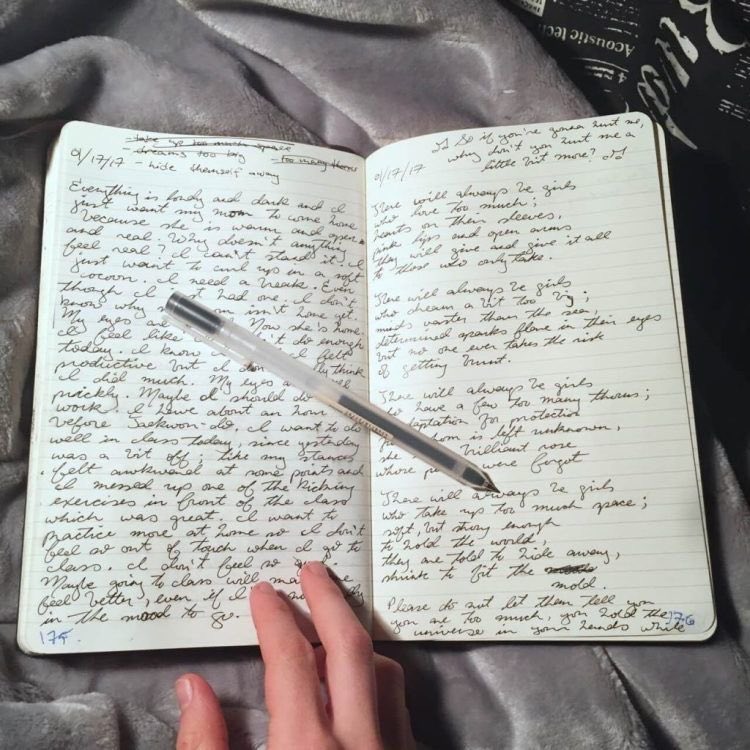 - take up too much space
- dreams too big
- too many thorns
- hide themself away
01/17/17
Everything is lonely and dark and I
just want my mom to come home
because she is warm and open
and real. Why doesn't anything
feel real? I can't stand it. I
just want to curl up in a soft
cocoon. I need a break. Even
though I had one. I don't
know why isn't home yet.
My eyes are Now she's home.
I feel like I don't do enough
today. I know I felt
productive but I don't think
I did much. My eyes
prickly. Maybe I should do
work. I have about an hour
before Taekwon-do. I want to do
well in class today, since yesterday
was a bit off; like my stances
felt awkward at some points and
I messed up one of the kicking
exercises in front of the class
which was great. I want to
practice more at home so I don't
feel so out of touch when I go to
class. I don't feel so
Maybe going to class will make me
feel better, even if I'm
in the mood to go.
175
♫ So if you're gonna hurt me,
why don't you hurt me a
little bit more? ♫
01/17/17
There will always be girls
who love too much;
hearts on their sleeves,
pink lips and open arms
they will give and give it all
to those who only take.
There will always be girls
who dream a bit too big;
minds vaster than the sea,
determined sparks flare in their eyes
but no one ever takes the risk
of getting burnt.
There will always be girls
who have a few too many thorns;
adaptation for protection
from whom is left unknown,
the brilliant rose
whose were forgot
There will always be girls
who take up too much space;
soft, but strong enough
to hold the world,
they are told to hide away,
shrink to fit the
mold.
Please do not let them tell you
you are too much, you hold the
universe in your hands while
176
Acoustic tech